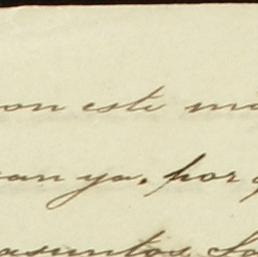 on este m
an ya, por
asuntos